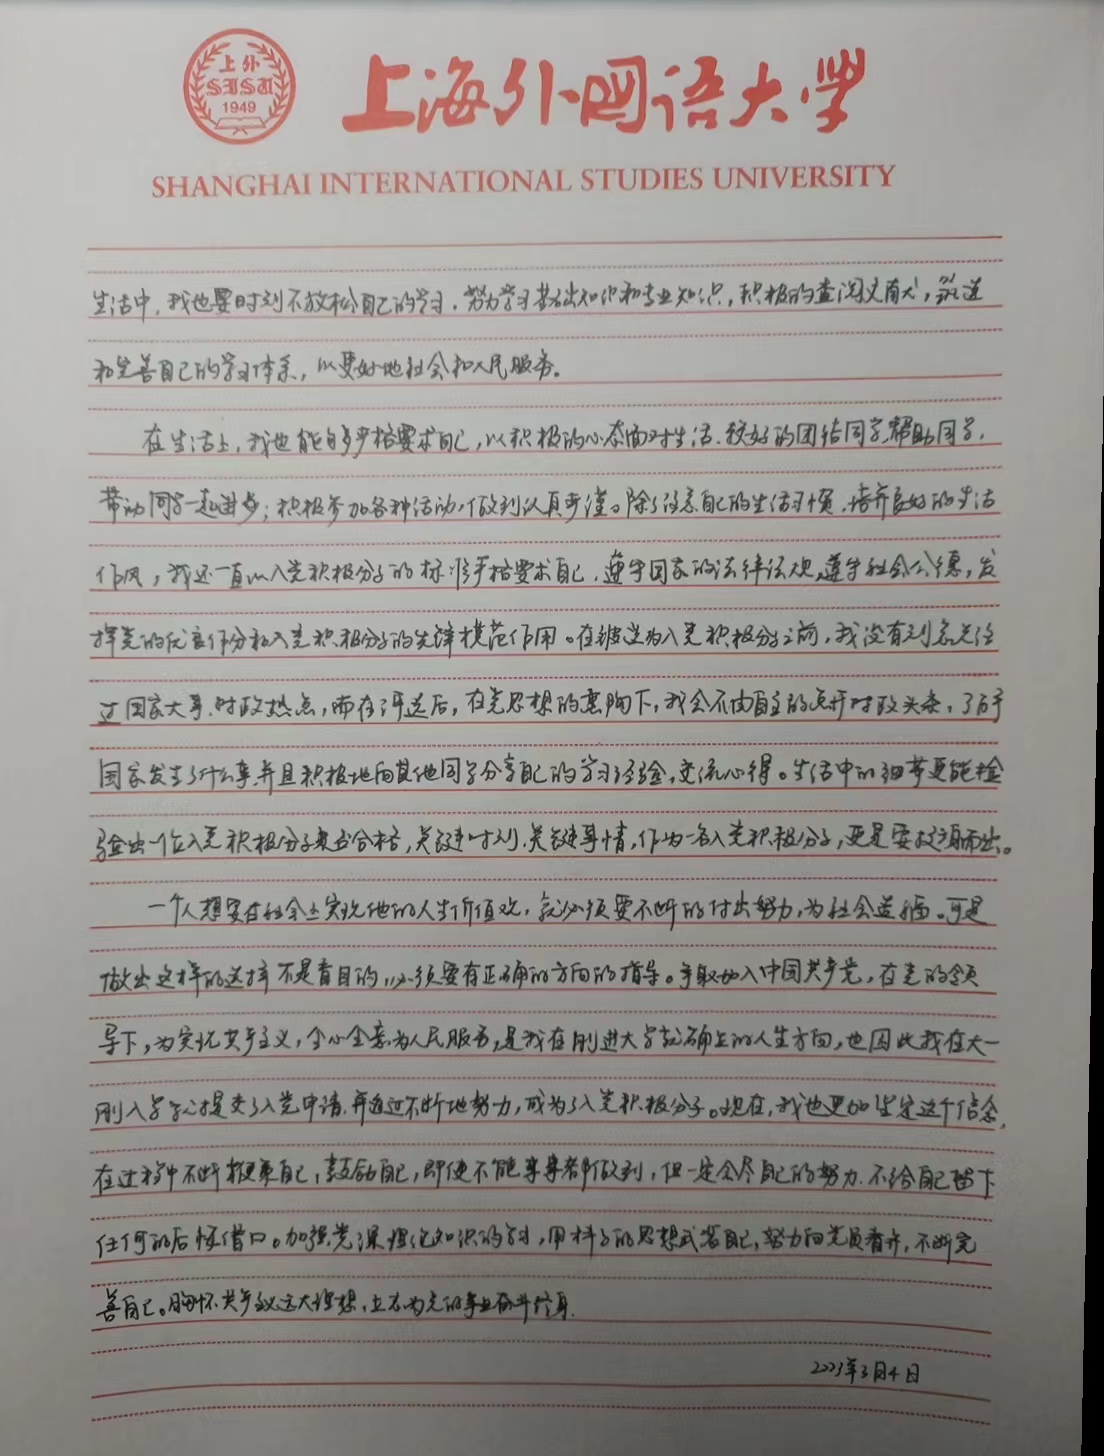 上外
SISU
1949
上海外国语大学
SHANGHAI INTERNATIONAL STUDIES UNIVERSITY
生活中，我也要时刻不放松自己的学习，努力学习基础知识和专业知识，积极的查阅文献，
和完善自己的学习体系，以更好地社会和人民服务。
在生活上，我也能够多严格要求自己，以积极的心态面对生活，较好的团结同学，帮助同学，
带动同学一起进步；积极参加各种活动，做到认真严谨。除了注意自己的生活习惯，培养良好的生活
作风，我还一直以入党积极分子的标准严格要求自己，遵守国家的法律法规，遵守社会公德，发
挥党的优良作分和入党积极分子的先锋模范作用。在被选为入党积极分子之前，我没有刻意关注
过国家大事、时政热点，而在评选后，在党思想的熏陶下，我会不由自主的点开时政头条，了解
国家发生了什么事并且积极地向其他同学分享自己的学习经验，交流心得。生活中的细节更能检
验出一位入党积极分子是否合格，关键时刻，关键事情，作为一名入党积极分子，更是要挺身而出。
一个人想要在社会上实现他的人生价值观，就必须要不断的付出努力，为社会造福。可是
做出这样的选择不是盲目的，必须要有正确的方向的指导。争取加入中国共产党，在党的领
导下，为实现共产主义，全心全意为人民服务，是我在刚进大学就确立的人生方向，也因此我在大一
刚入学就提交了入党申请，并通过不断地努力，成为了入党积极分子。现在，我也更加坚定这个信念，
在过程中不断报策自己，鼓励自己，即使不能事事都做到，但一定会尽自己的努力，不给自己留下
任何的后悔借口。加强党课理论知识的学习，用科学的思想武装自己，努力向党员看齐，不断完
善自己。胸怀共产主义远大理想，立志为党的事业奋斗终身。
2023年3月4日